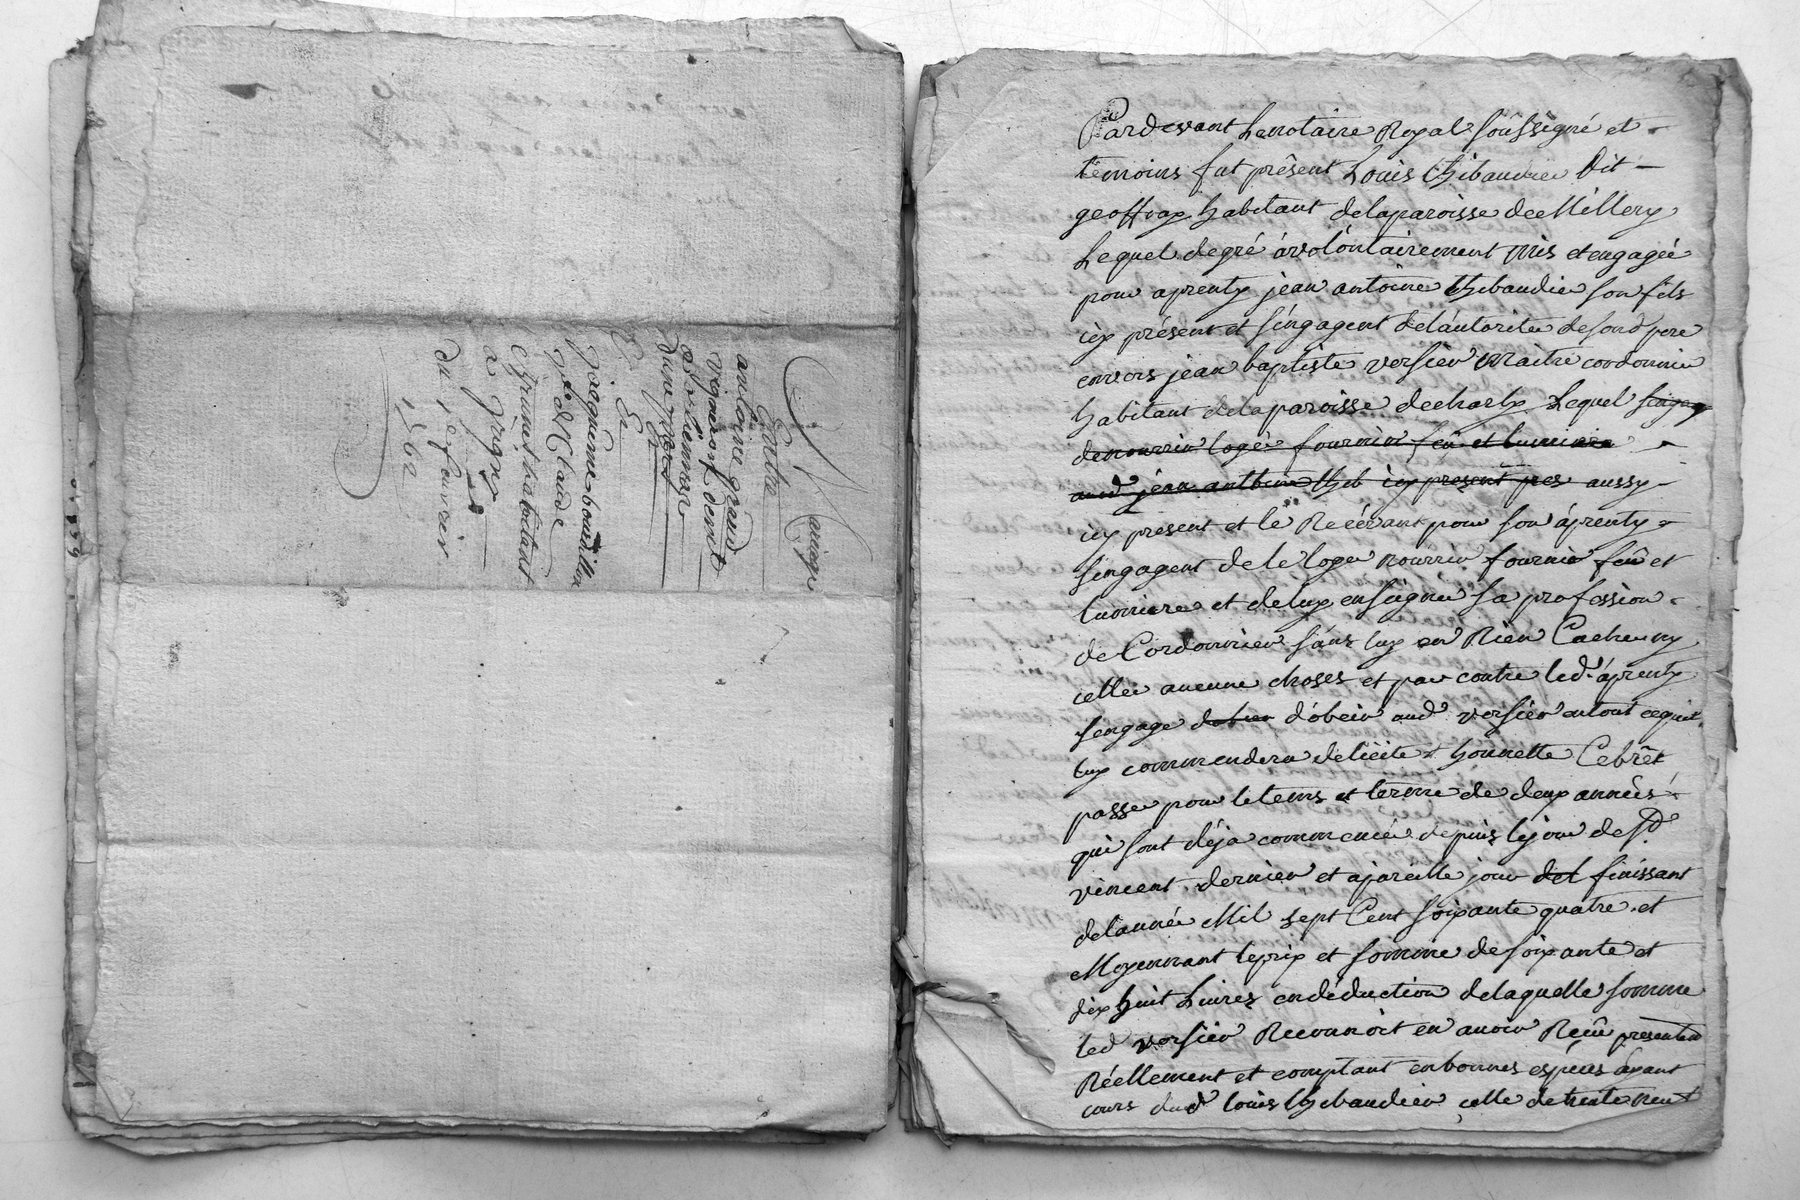 Mariage
Entre
antoine giraud
vigneron d'une part
du 1er fevrier
1762
Pardevant Le notaire Royal soussigné et
temoins fut présent Louis Thibaudier dit
geoffray habitant dela paroisse de Millery
Lequel degré à volontairement mis et engagée
pour aprenty jean antoine Thibaudier son fils
icy présent et s'engagent del'autorite de sond pere
envers jean baptiste versier maitre cordonnier
habitant dela paroisse decharly Lequel sengage
denourrir logér fournir feu et lumiere
aud jean antoine Thib icy present pres aussy
icy present et le Recevant pour son áprenty
sengagent de le loger nourrir fournir feu et
lumiere et de luy enseigner sa profession
de Cordonnier sans luy en Rien Cacher ny
celler aucune choses et par contre led. áprenty
sengage dobeir d'obeir aud versier entout cequil
luy commendera delicite et honnette Cebrêt
passe pour letems et terme de deux années
qui sont déja commencée depuis lejour de St
vincent dernier et apareille jour del finissant
delannée Mil sept Cent soixante quatre et
Moyennant leprix et somme de soixante et
dix huit Livres endéduction delaquelle somme
led versier Reconnoit en avoir Reçu presentem
Réellement et comptant enbonnes espéces ayant
cours dud Louis Thibaudier celle de trente neuf